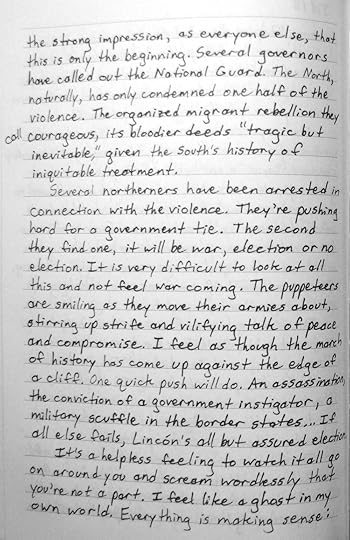 the strong impression, as everyone else, that
this is only the beginning. Several governors
have called out the National Guard. The North,
naturally, has only condemned one half of the
violence. The organized migrant rebellion they
call courageous, its bloodier deeds "tragic but
inevitable," given the South's history of
iniquitable treatment.
Several northerners have been arrested in
connection with the violence. They're pushing
hard for a government tie. The second
they find one, it will be war, election or no
election. It is very difficult to look at all
this and not feel war coming. The puppeteers
are smiling as they move their armies about,
stirring up strife and vilifying talk of peace
and compromise. I feel as though the march
of history has come up against the edge of
a cliff. One quick push will do. An assassination,
the conviction of a government instigator, a
military scuffle in the border states... If
all else fails, Lincón's all but assured election.
It's a helpless feeling to watch it all go
on around you and scream wordlessly that
you're not a part. I feel like a ghost in my
own world. Everything is making sense;